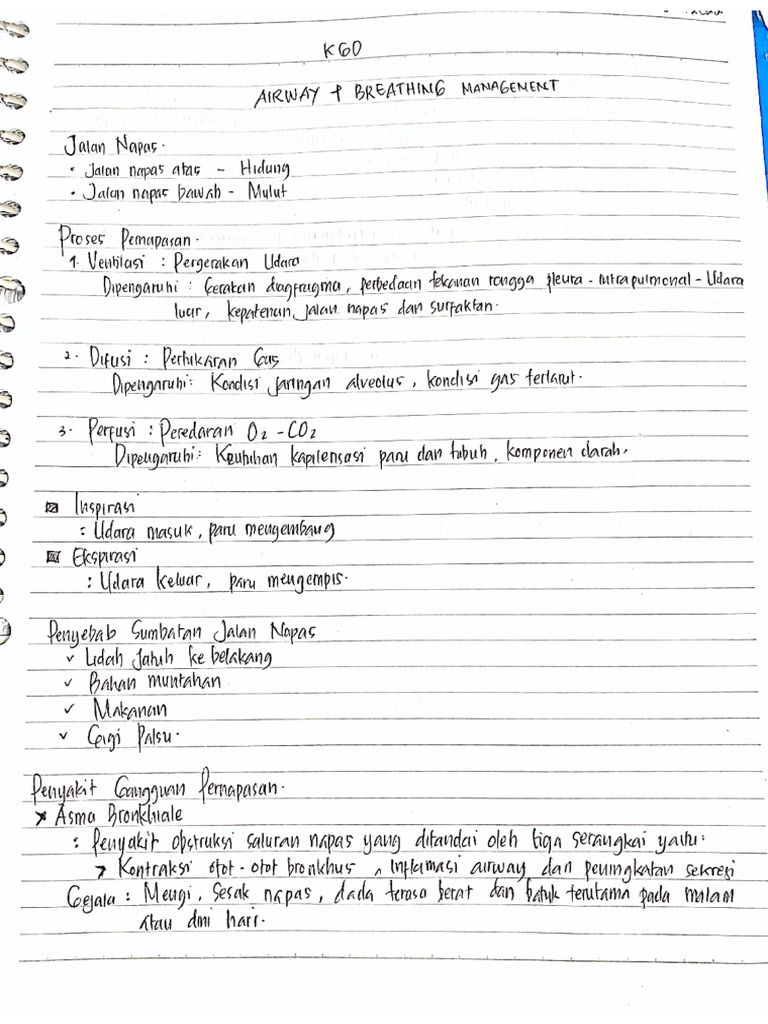 KGD
AIRWAY + BREATHING MANAGEMENT
Jalan Napas.
• Jalan napas atas - Hidung
• Jalan napas bawah - Mulut
Proses Pernapasan.
1. Ventilasi : Pergerakan Udara
Dipengaruhi : Gerakan diagfragma, perbedaan tekanan rongga pleura - intrapulmonal - Udara
luar, kepatenan jalan napas dan surfaktan.
2. Difusi : Pertukaran Gas
Dipengaruhi: Kondisi jaringan alveolus, kondisi gas terlarut.
3. Perfusi : Peredaran O2 - CO2
Dipengaruhi: Keutuhan kapilensasi paru dan tubuh, komponen darah.
Inspirasi
: Udara masuk, paru mengembang
Ekspirasi
: Udara keluar, paru mengempis.
Penyebab Sumbatan Jalan Napas
✓ Lidah jatuh ke belakang
✓ Bahan muntahan
✓ Makanan
✓ Gigi Palsu.
Penyakit Gangguan Pernapasan.
> Asma Bronkhiale
: Penyakit obstruksi saluran napas yang ditandai oleh tiga serangkai yaitu:
> Kontraksi otot-otot bronkhus, inflamasi airway dan peningkatan sekresi
Gejala : Mengi, sesak napas, dada terasa berat dan batuk terutama pada malam
atau dini hari.